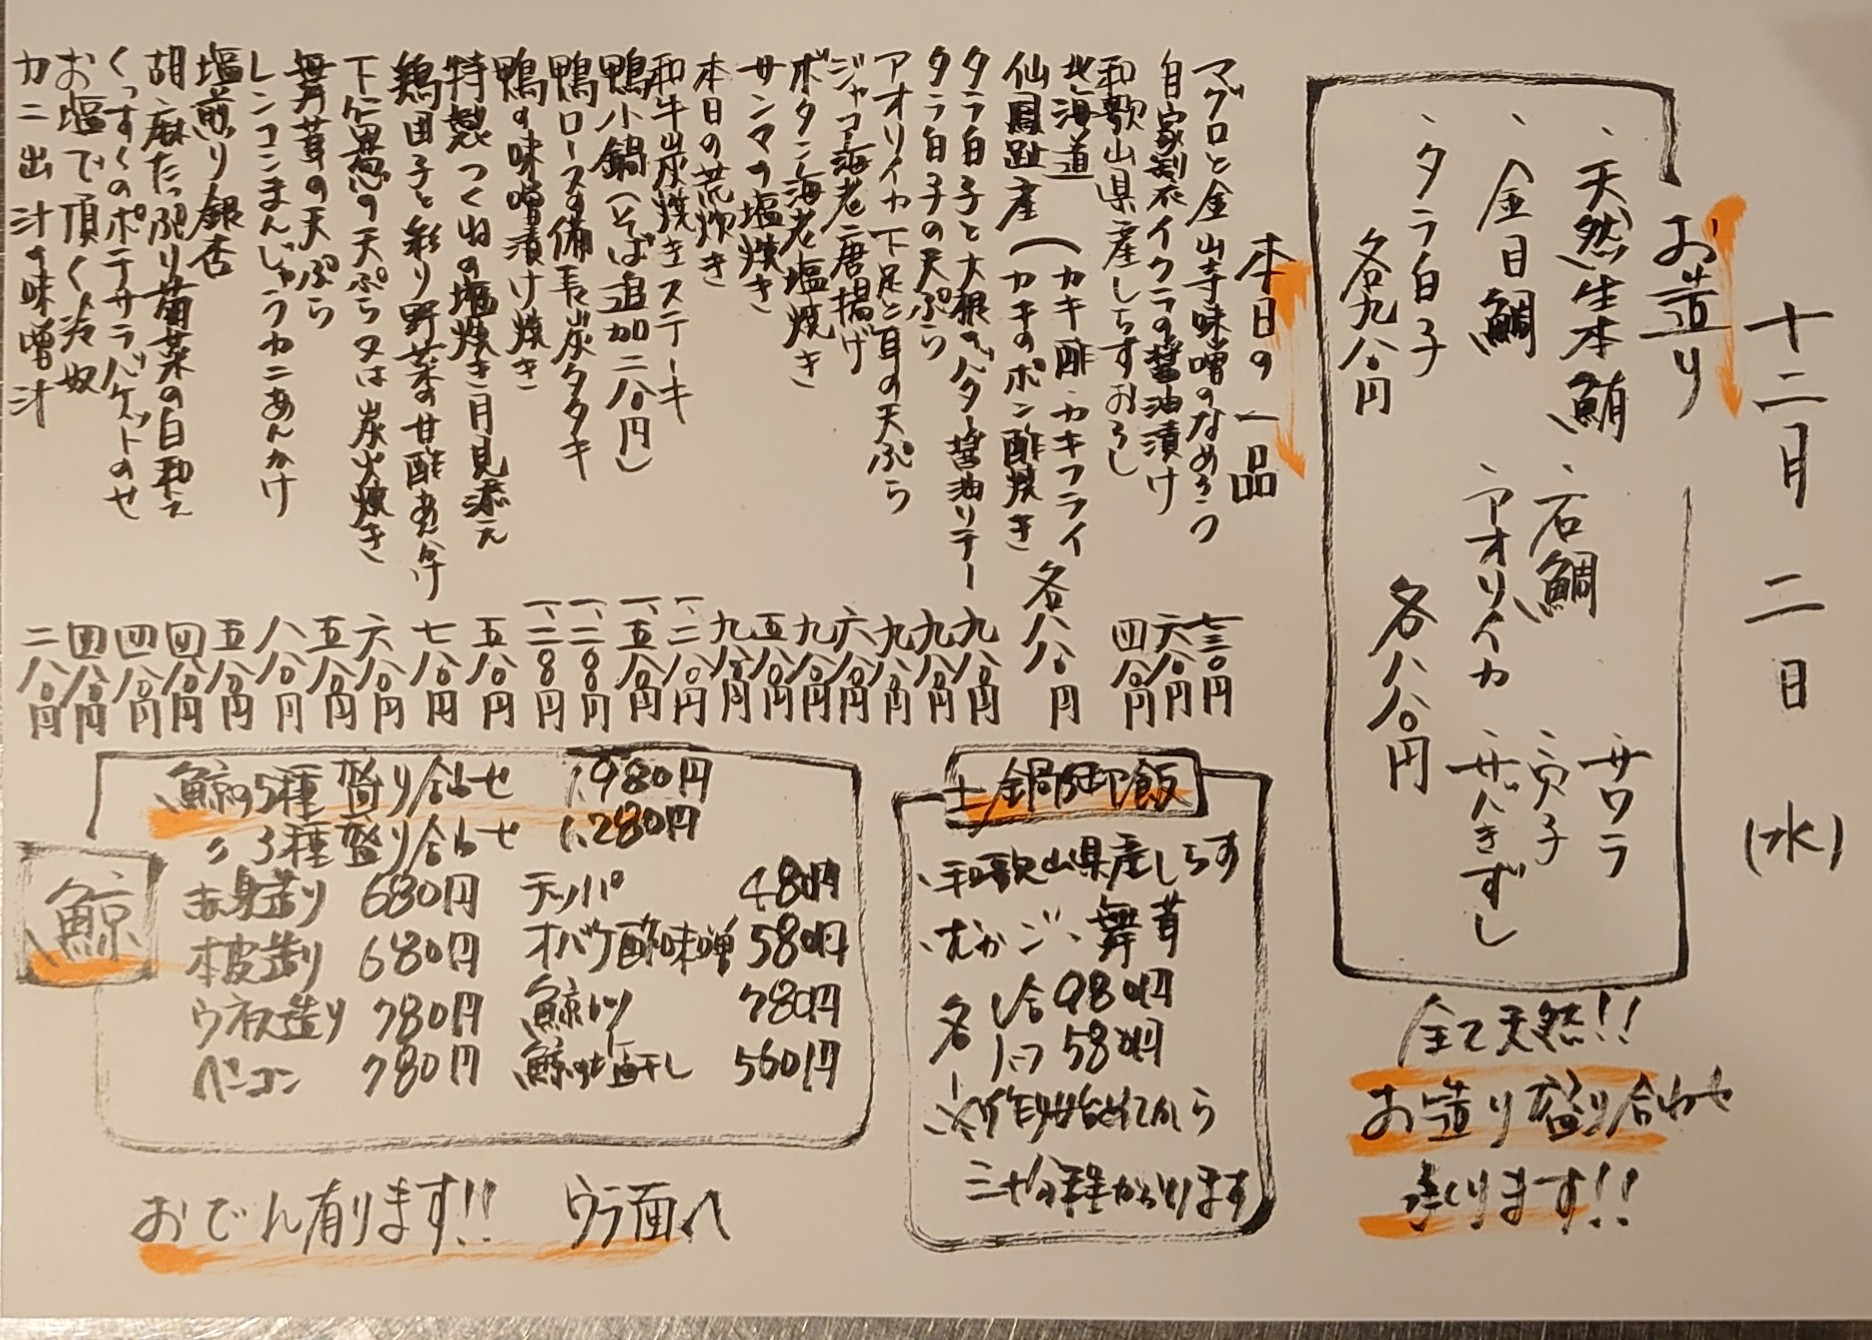 十二月二日(水)
お造り
・天然生本鮪 ・石鯛 ・サワラ
・金目鯛 ・アオリイカ ・真子
・タラ白子 ・サバきずし
各九八〇円 各八八〇円
全て天然!!
お造り盛り合わせ
承ります!!
本日の一品
マグロと金山寺味噌のなめろう 七三〇円
自家製イクラの醤油漬け 六八〇円
和歌山県産しらすおろし 四八〇円
北海道 (カキ酢・カキフライ
仙鳳趾産 カキのポン酢焼き 各八八〇円
タラ白子と大根のバター醤油ソテー 九八〇円
タラ白子の天ぷら 九八〇円
アオリイカ下足と耳の天ぷら 九八〇円
ジャコ海老唐揚げ 六八〇円
ボタン海老塩焼き 九八〇円
サンマの塩焼き 五八〇円
本日の荒炊き 九八〇円
和牛炭焼きステーキ 一、二八〇円
鴨小鍋(そば追加二八〇円) 一、五八〇円
鴨ロースの備長炭タタキ 一、二八〇円
鴨の味噌漬け焼き 一、二八〇円
特製つくねの塩焼き月見添え 五八〇円
鶏団子と彩り野菜の甘酢あんかけ 七八〇円
下仁田葱の天ぷら又は炭火焼き 六八〇円
舞茸の天ぷら 五八〇円
レンコンまんじゅうカニあんかけ 八八〇円
塩煎り銀杏 五八〇円
胡麻たっぷり菊菜の白和え 四八〇円
くっすくのポテサラバゲットのせ 四八〇円
お塩で頂く冷奴 四八〇円
カニ出汁の味噌汁 二八〇円
土鍋御飯
・和歌山県産しらす
・むかご ・舞茸
各 1合 980円
1/2 580円
※炊き始めてから
三十分程かかります
鯨
鯨の5種盛り合わせ 1,980円
〃 3種盛り合わせ 1,280円
赤身造り 680円 テッパ 480円
本皮造り 680円 オバケ酢味噌 580円
ウネス造り 780円 鯨カツ 780円
ベーコン 780円 鯨の塩干し 560円
おでん有ります!! ウラ面へ